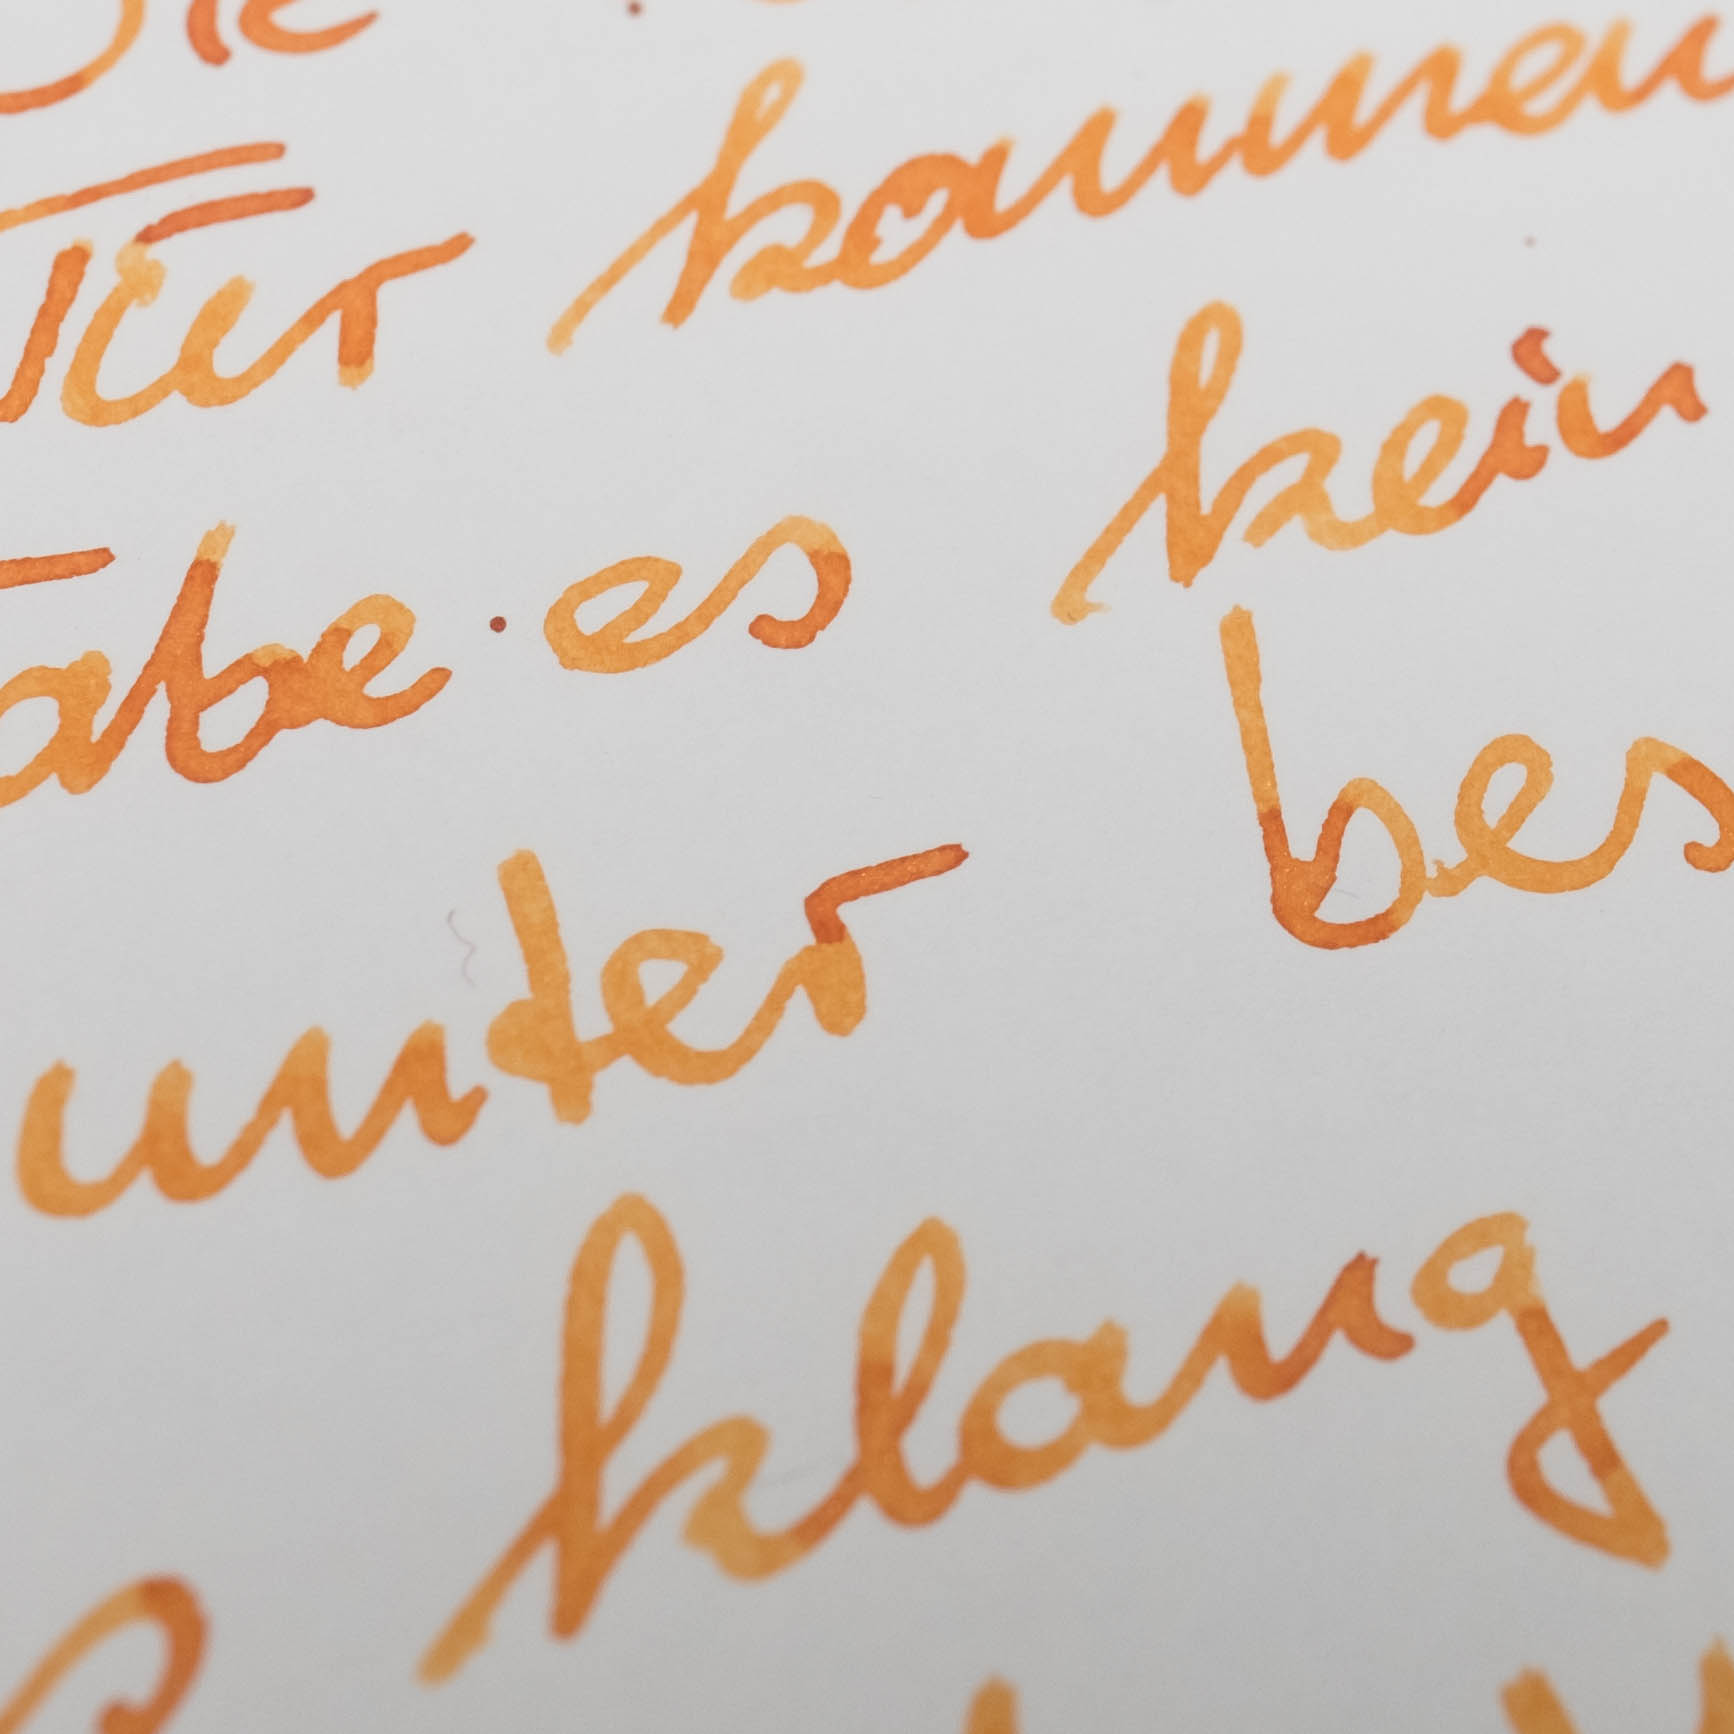 Tür kommen
abe es kein
unter bes
klang